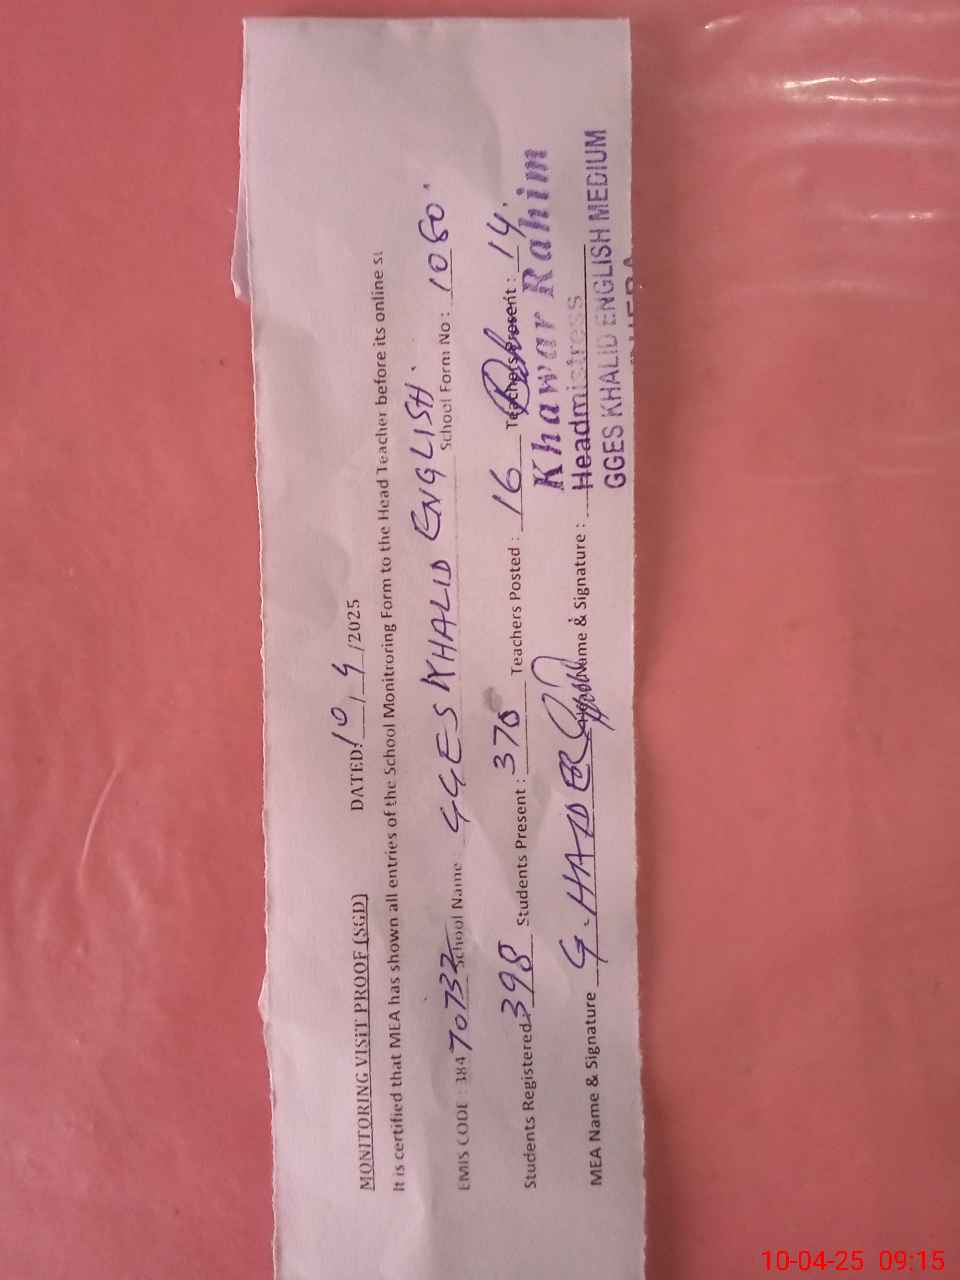 MONITORING VISIT PROOF (SGD) DATED: 10/4/2025
It is certified that MEA has shown all entries of the School Monitroring Form to the Head Teacher before its online
EMIS CODE : 38470732 School Name : GGES KHALID ENGLISH. School Form No : 1080.
Students Registered: 398 Students Present : 378 Teachers Posted : 16 Teachers Present : 14.
Khawar Rahim
MEA Name & Signature G. HAIDER Name & Signature : Headmistress
GGES KHALID ENGLISH MEDIUM
10-04-25 09:15